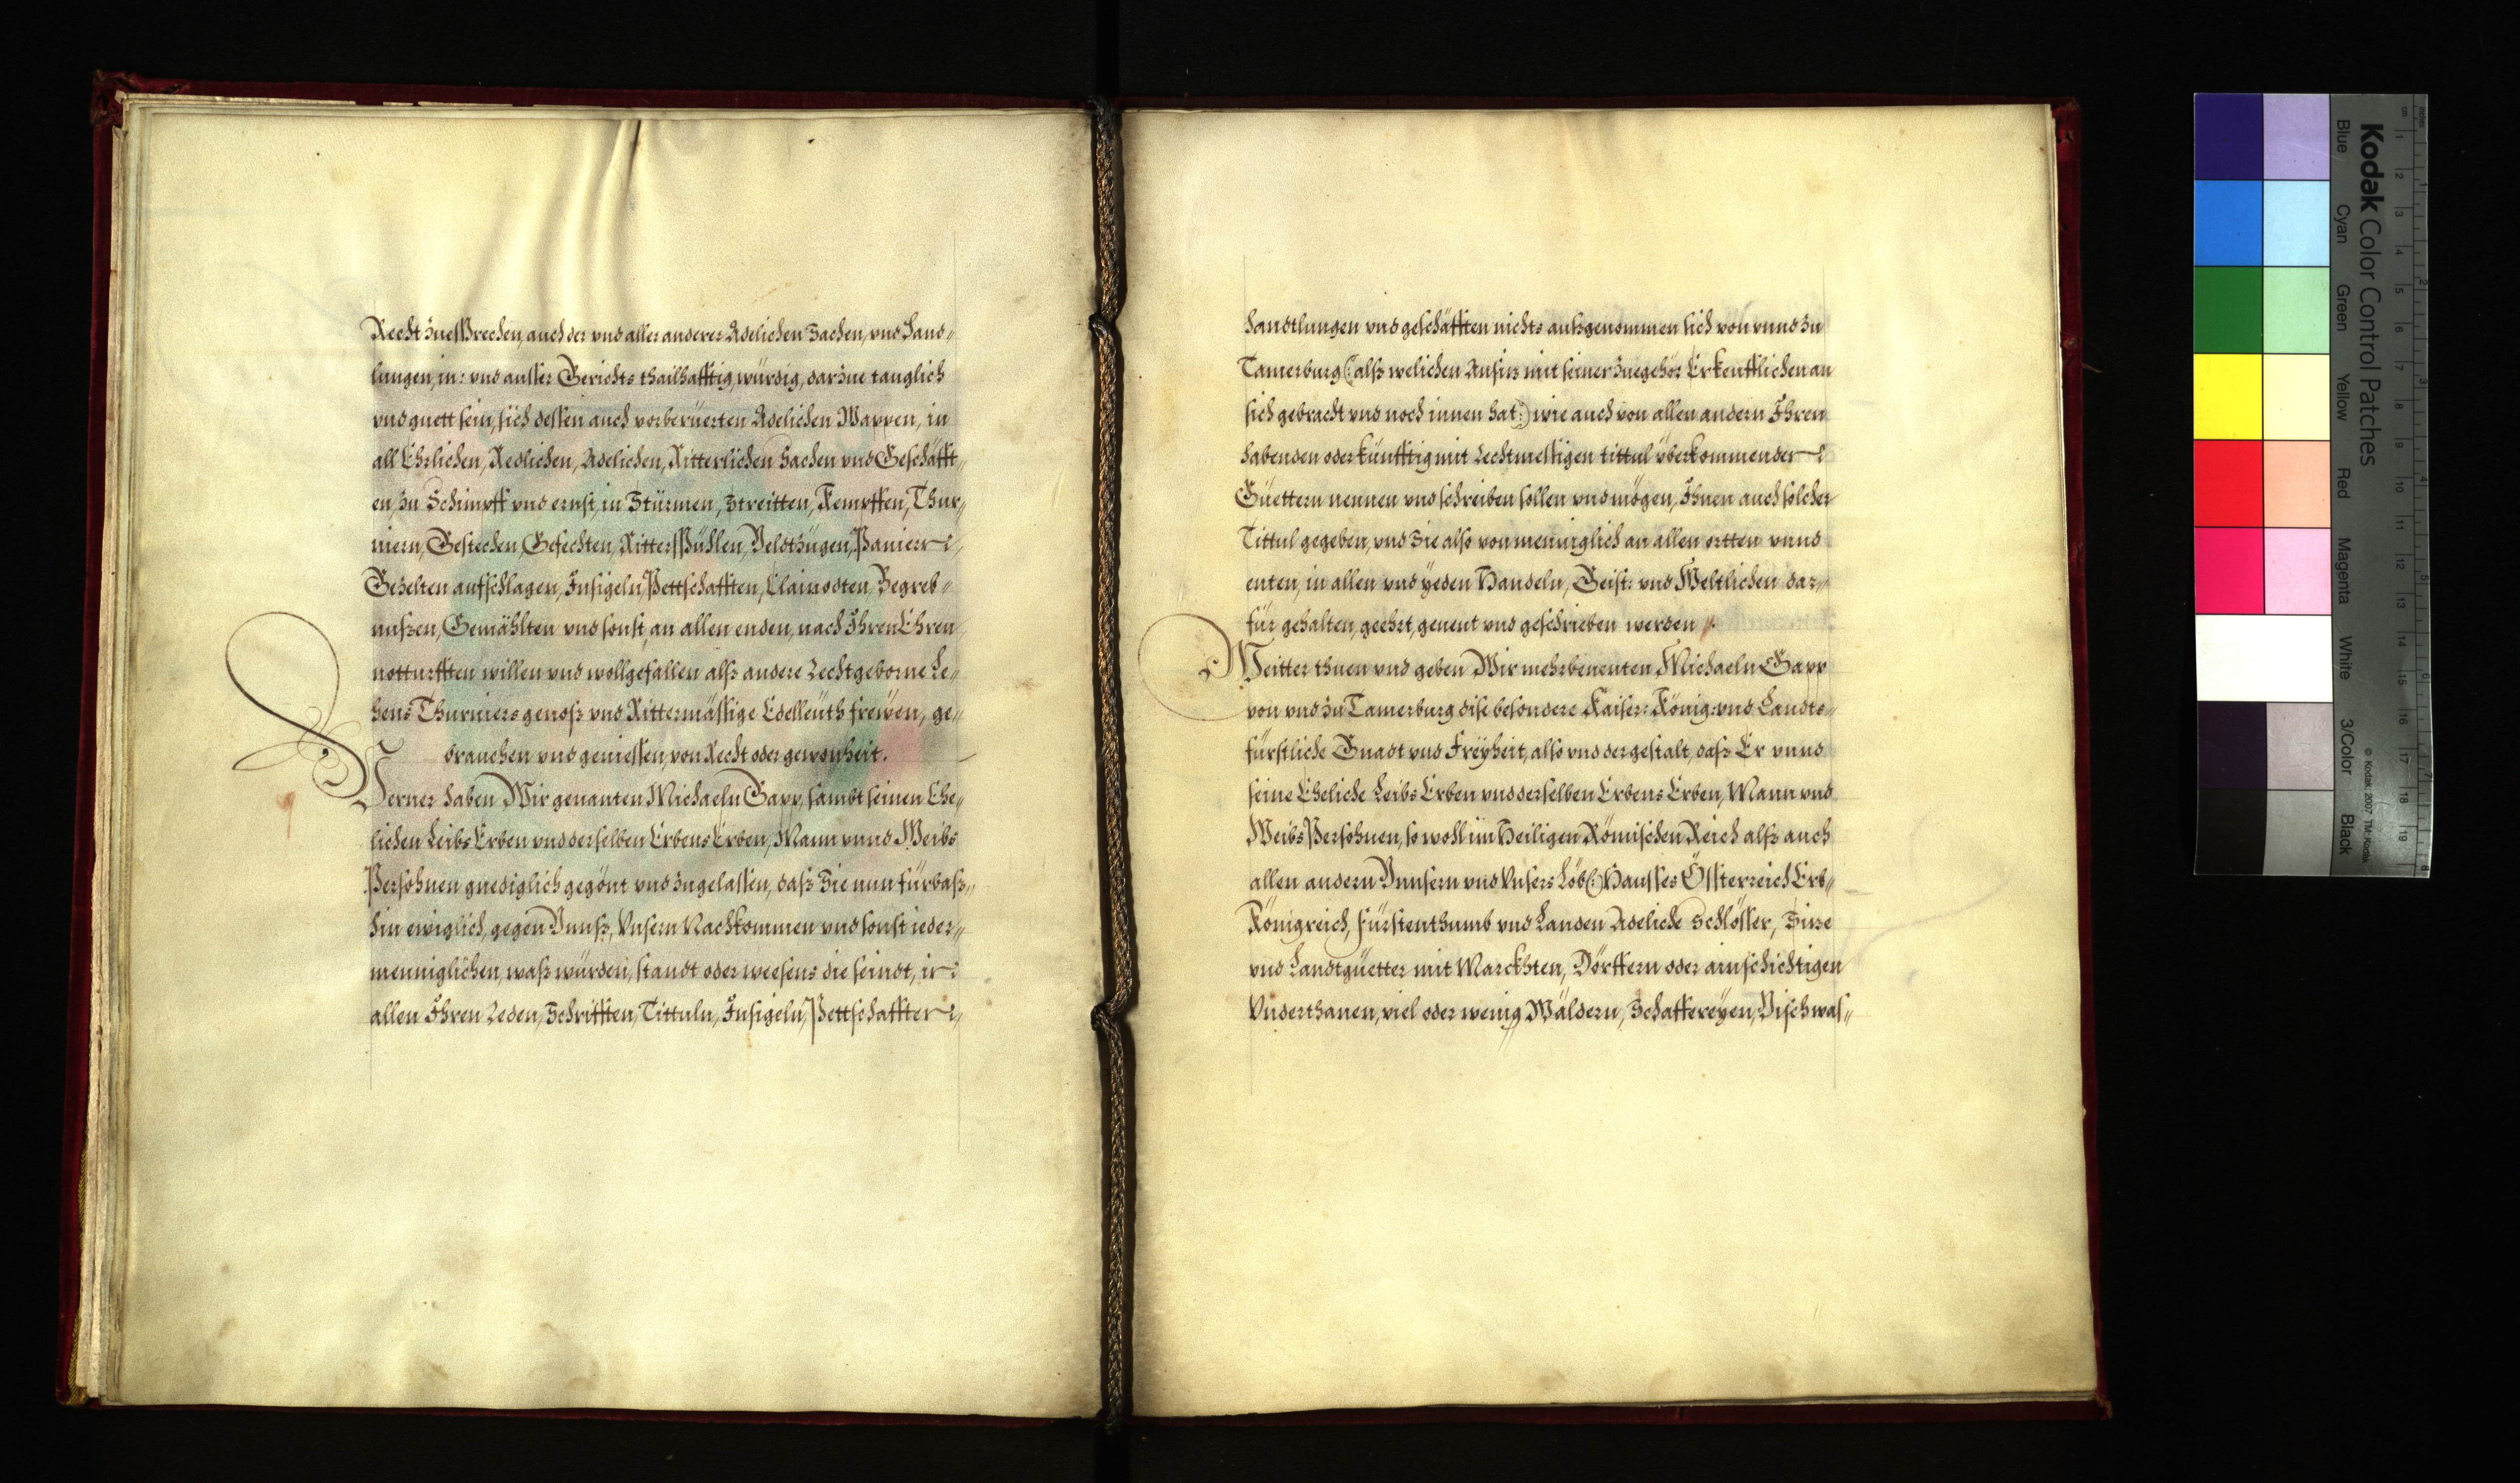 Recht zuesprechen, auch der vnd aller anderer Adelichen Sachen, vnd Hand-
lungen, in: vnd ausser Gerichts thailhafftig, würdig, darzue tauglich
vnd guett sein, sich dessen auch vorberüerten Adelichen Wappen, in
all Ehrlichen, Redlichen, Adelichen, Ritterlichen Sachen vnd Geschäfft-
en, zu Schimpff vnd ernst, in Stürmen, Streitten, Kempffen, Thur-
niern, Gestechen, Gefechten, Ritterspühlen, Veldtzügen, Paniern,
Gezelten aufschlagen, Insigeln, Pettschafften, Clainodten, Begreb-
nußen, Gemählten vnd sonst, an allen enden, nach Ihren Ehren
notturfften willen vnd wollgefallen alß andere Rechtgeborne Le-
hens Thurniersgenoß vnd Rittermässige Edelleüth frewen, ge-
brauchen vnd geniessen, von Recht oder gewonheit.
Verner haben Wir genanten Michaeln Gapp, sambt seinen Ehe-
lichen Leibs Erben vnd derselben Erbens Erben, Mann vnnd Weibs
Persohnen gnediglich gegönt vnd zugelassen, daß Sie nun fürbaß-
hin ewiglich, gegen Vnnß, Vnsern Nachkommen vnd sonst ieder-
menniglichen, waß würden, standt oder weesens die seindt, in
allen Ihren Reden, Schrifften, Tittuln, Insigeln, Pettschafften,
Handtlungen vnd geschäfften nichts außgenommen sich von vnnd zu
Tamerburg (:alß welichen Ansitz mit seiner Zuegehör Er keufflichen an
sich gebracht vnd noch innen hat:) wie auch von allen andern Ihren
habenden oder künfftig mit Rechtmessigen tittul überkommenden
Güettern nennen vnd schreiben sollen vnd mögen, Ihnen auch solcher
Tittul gegeben, vnd Sie also von meniglich an allen ortten vnnd
enten, in allen vnd yeden Handeln, Geist: vnd Weltlichen dar-
für gehalten, geehrt, genent vnd geschrieben werden.
Weitter thuen vnd geben Wir mehrbenenten Michaeln Gapp
von vnd zu Tamerburg dise besondere Kaiser: König: vnd Landts-
fürstliche Gnadt vnd Freyheit, also vnd dergestalt, daß Er vnnd
seine Eheliche Leibs Erben vnd derselben Erbens Erben, Mann vnd
Weibs Persohnen, so wohl im Heiligen Römischen Reich alß auch
allen andern Vnnsern vnd Vnsers Löb(:) Hausses Össterreich Erb-
Königreich, Fürstenthumb vnd Landen Adeliche Schlösser, Sitze
vnd Landtgüetter mit Marckhten, Dörffern oder ainschichtigen
Vnderthanen, viel oder wenig Wäldern, Schaffereyen, Vischwas-
Kodak Color Control Patches
Blue Cyan Green Yellow Red Magenta White 3/Color Black
© Kodak, 2007 TM: Kodak